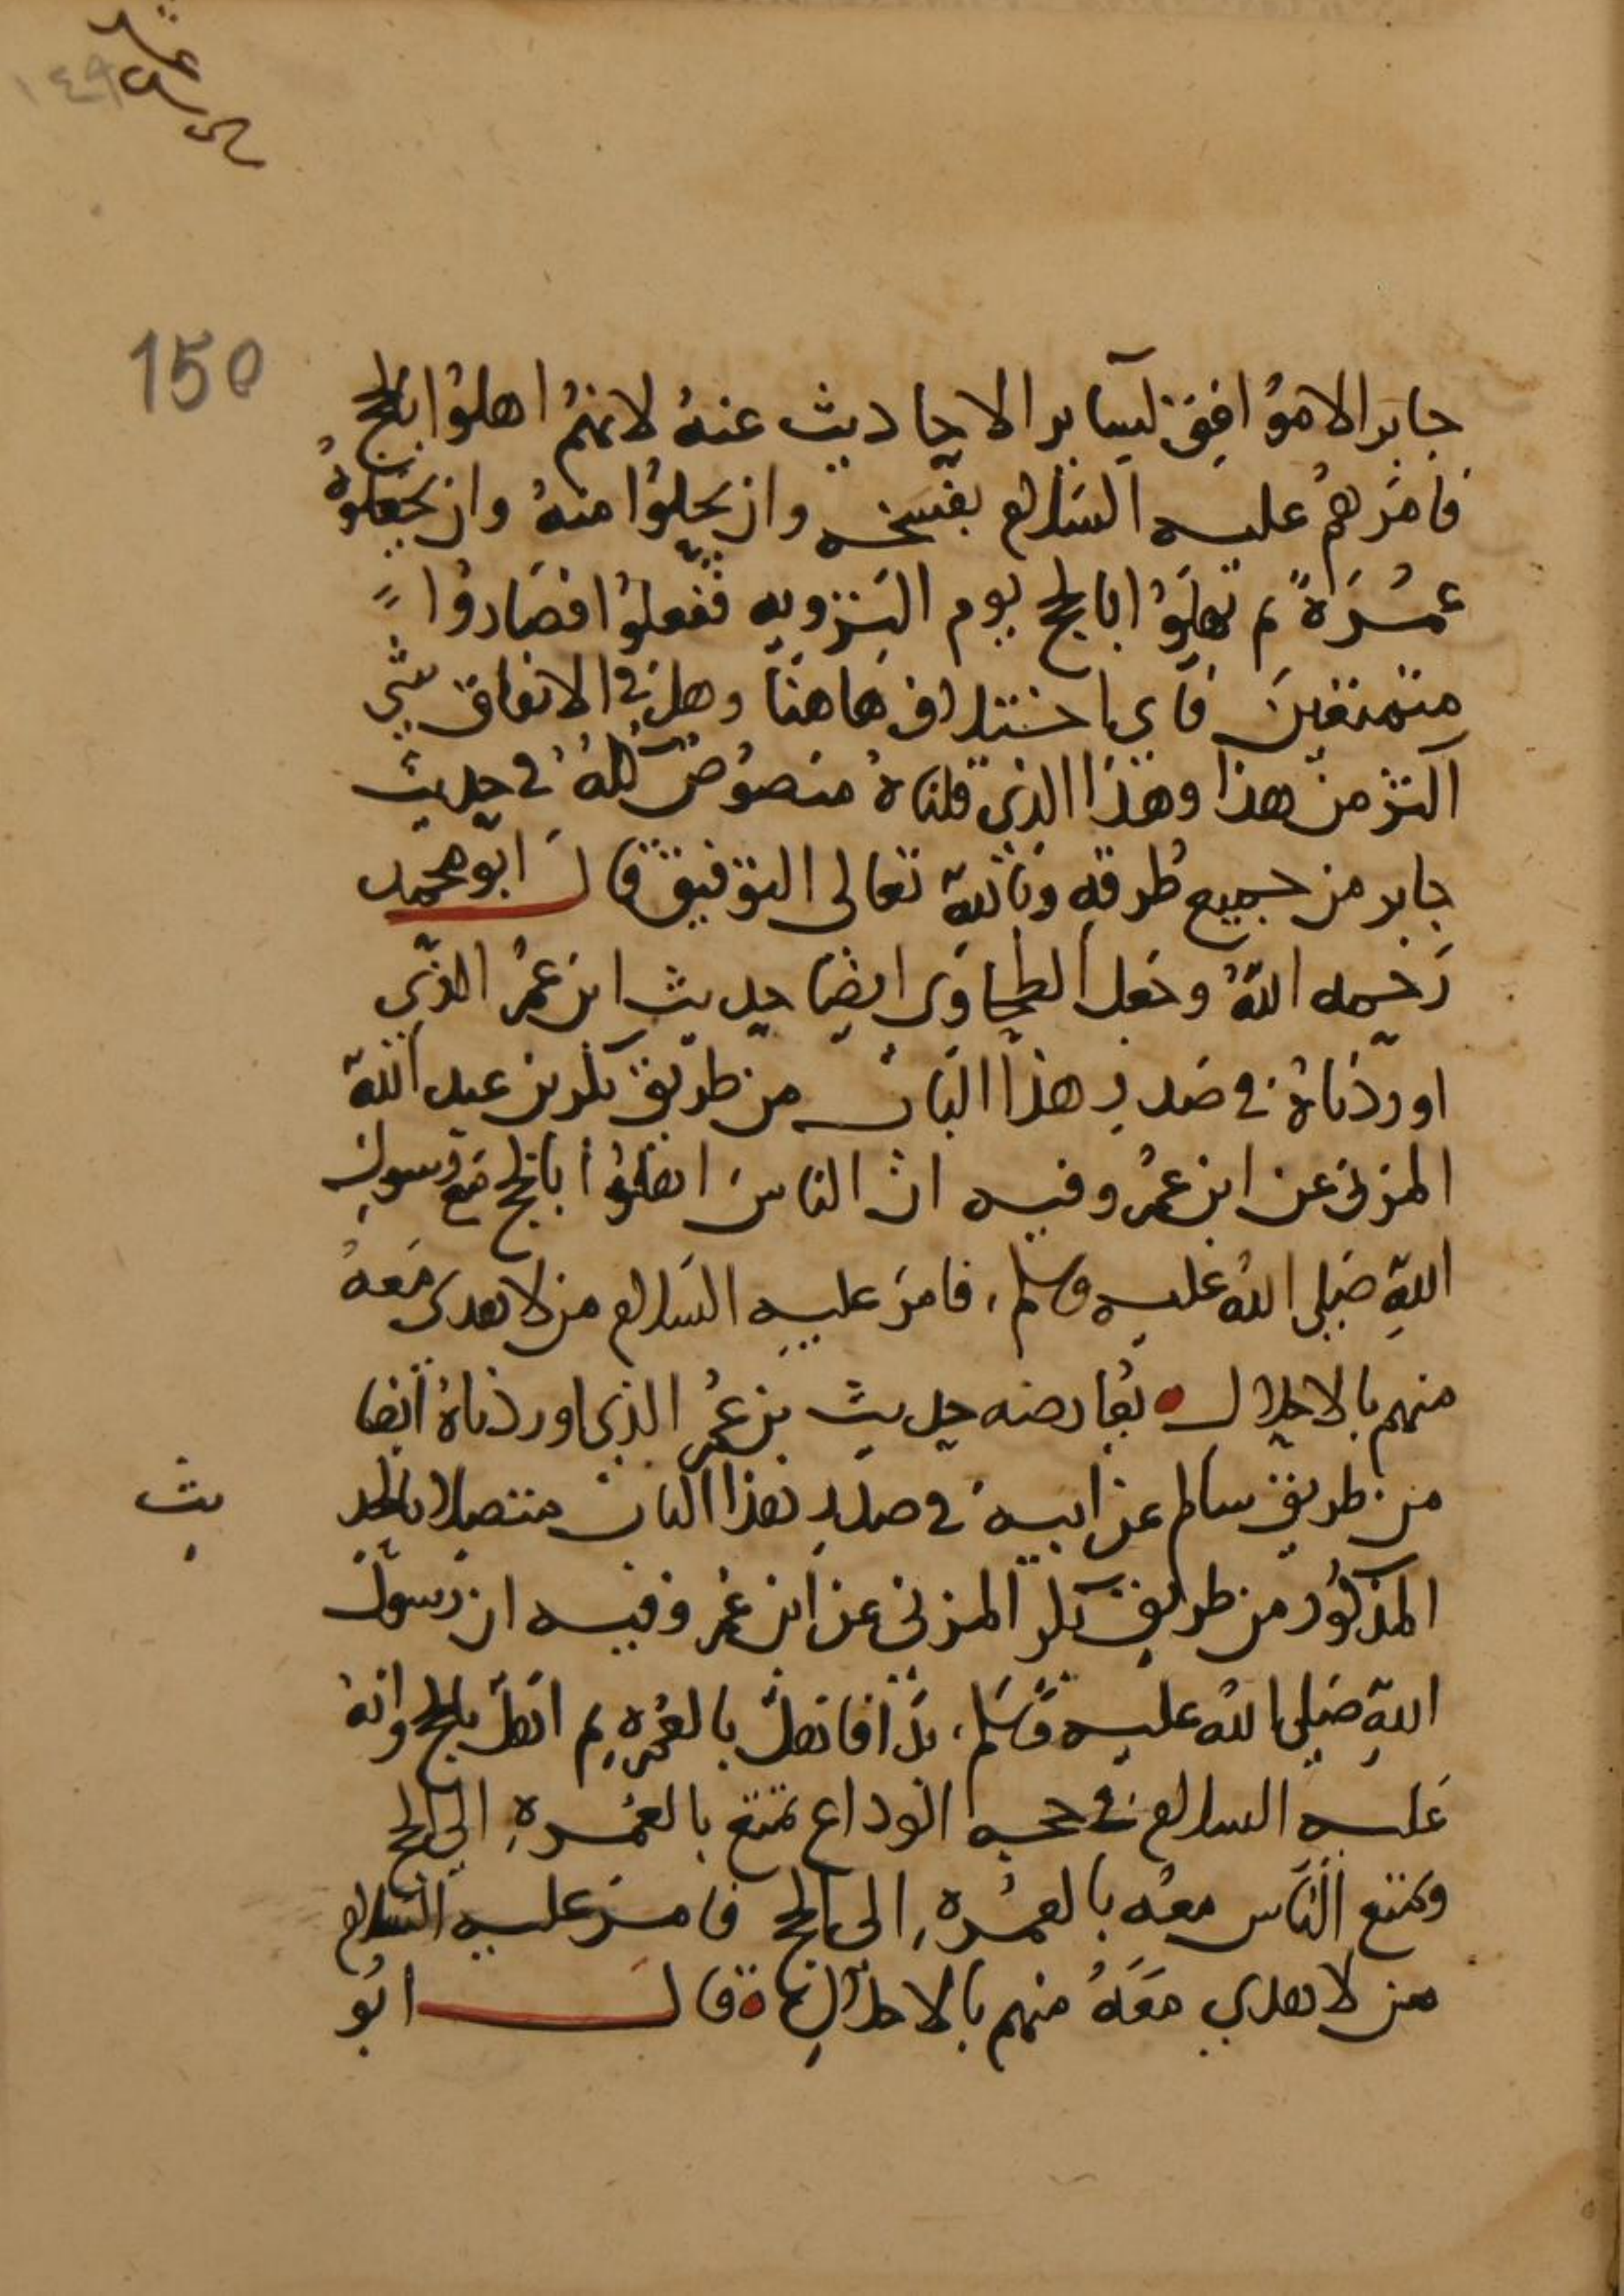 ١٤٩
150
جابر الا موافق لساير الاحاديث عنه لانهم اهلوا بالحج
فامرهم عليه السلام بفسخه وان يحلوا منه وان يجعلوه
عمرة ثم يهلوا بالحج يوم التروية ففعلوا فصاروا
متمتعين فاي اختلاف هاهنا وهل في الاتفاق شي
اكثر من هذا وهذا الذي قلناه منصوص كله في حديث
جابر من جميع طرقه وبالله تعالى التوفيق قال ابو محمد
رحمه الله وجعل الطحاوي ايضا حديث ابن عمر الذي
اوردناه في صدر هذا الباب من طريق بكر بن عبد الله
المزني عن ابن عمر وفيه ان الناس اهلوا بالحج مع رسول
الله صلى الله عليه وسلم، فامر عليه السلام من لا هدي معه
منهم بالاحلال يعارضه حديث بن عمر الذي اوردناه ايضا
من طريق سالم عن ابيه في صدر هذا الباب متصلا بالحد
يث
المذكور من طريق بكر المزني عن ابن عمر وفيه ان رسول
الله صلى الله عليه وسلم، بدا فاهل بالعمرة ثم اهل بالحج وانه
عليه السلام في حجه الوداع تمتع بالعمرة الى الحج
وتمتع الناس معه بالعمرة الى الحج فامر عليه السلام
من لا هدي معه منهم بالاحلال قال ابو